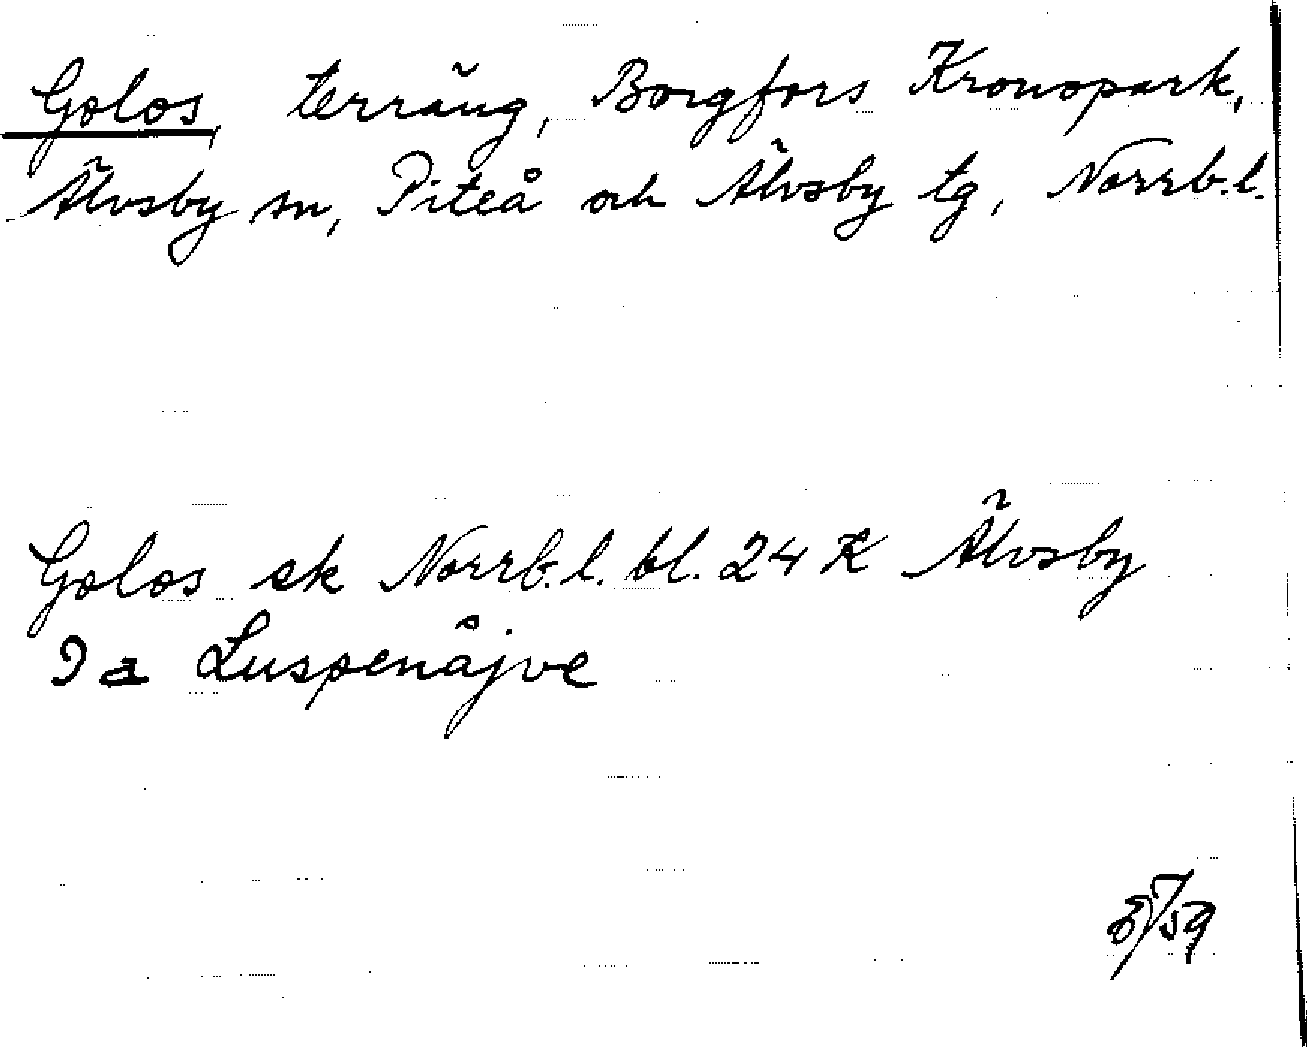 Golos, terräng, Borgfors Kronopark,
Älvsby sn, Piteå och Älvsby tg, Norrb.l.
Golos ek Norrb.l. bl. 24 K Älvsby
9 a Luspenåjve